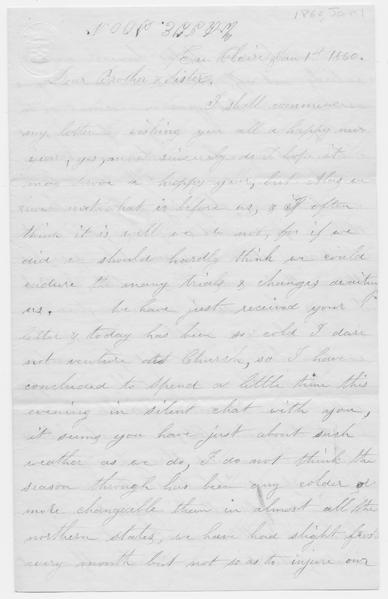 1860 Jan 1
Eau Claire Jan 1st 1860.
Dear Brother & Sister,
I shall commence
my letter wishing you all a happy new
year, yes, most sincerely do I hope it
may prove a happy year, but alas we
know not what is before us, & I often
think it is well we do not, for if we
did we should hardly think we could
endure the many trials & changes awaiting
us. We have just received your
letter & today has been so cold I dare
not venture to Church, so I have
concluded to spend a little time this
evening in silent chat with you,
it seems you have just about such
weather as we do, I do not think the
season though has been any colder or
more changeable than in almost all the
northern states, we have had slight frost
every month but not so as to injure our